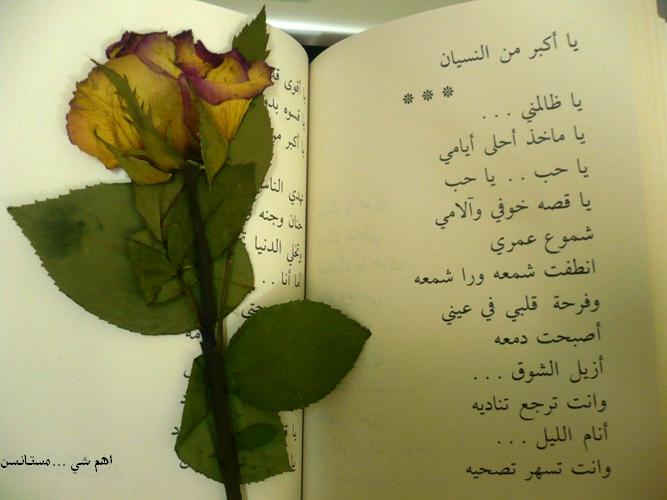 يا أكبر من النسيان
* * *
يا ظالمني . . .
يا ماخذ أحلى أيامي
يا حب . . يا حب
يا قصه خوفي وآلامي
شموع عمري
انطفت شمعه ورا شمعه
وفرحة قلبي في عيني
أصبحت دمعه
أزيل الشوق . . .
وانت ترجع تناديه
أنام الليل . . .
وانت تسهر تصحيه
أقوى
قسوه
أكبر
تهدي الناس
حنان وجنه
وتحلي الدنيا
أما أنا . .
اهم شي ... مستانسن